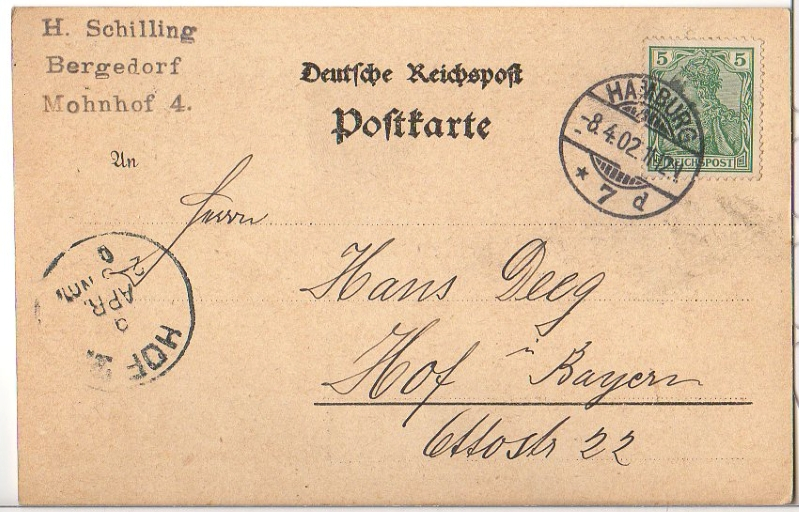 H. Schilling
Bergedorf
Mohnhof 4.
Deutsche Reichspost
Postkarte
An
5 5
REICHSPOST
HAMBURG
-8.4.02.
* 7 d
Herrn
Hans Deeg
Hof i Bayern
Ottostr 22
HOF
APR.